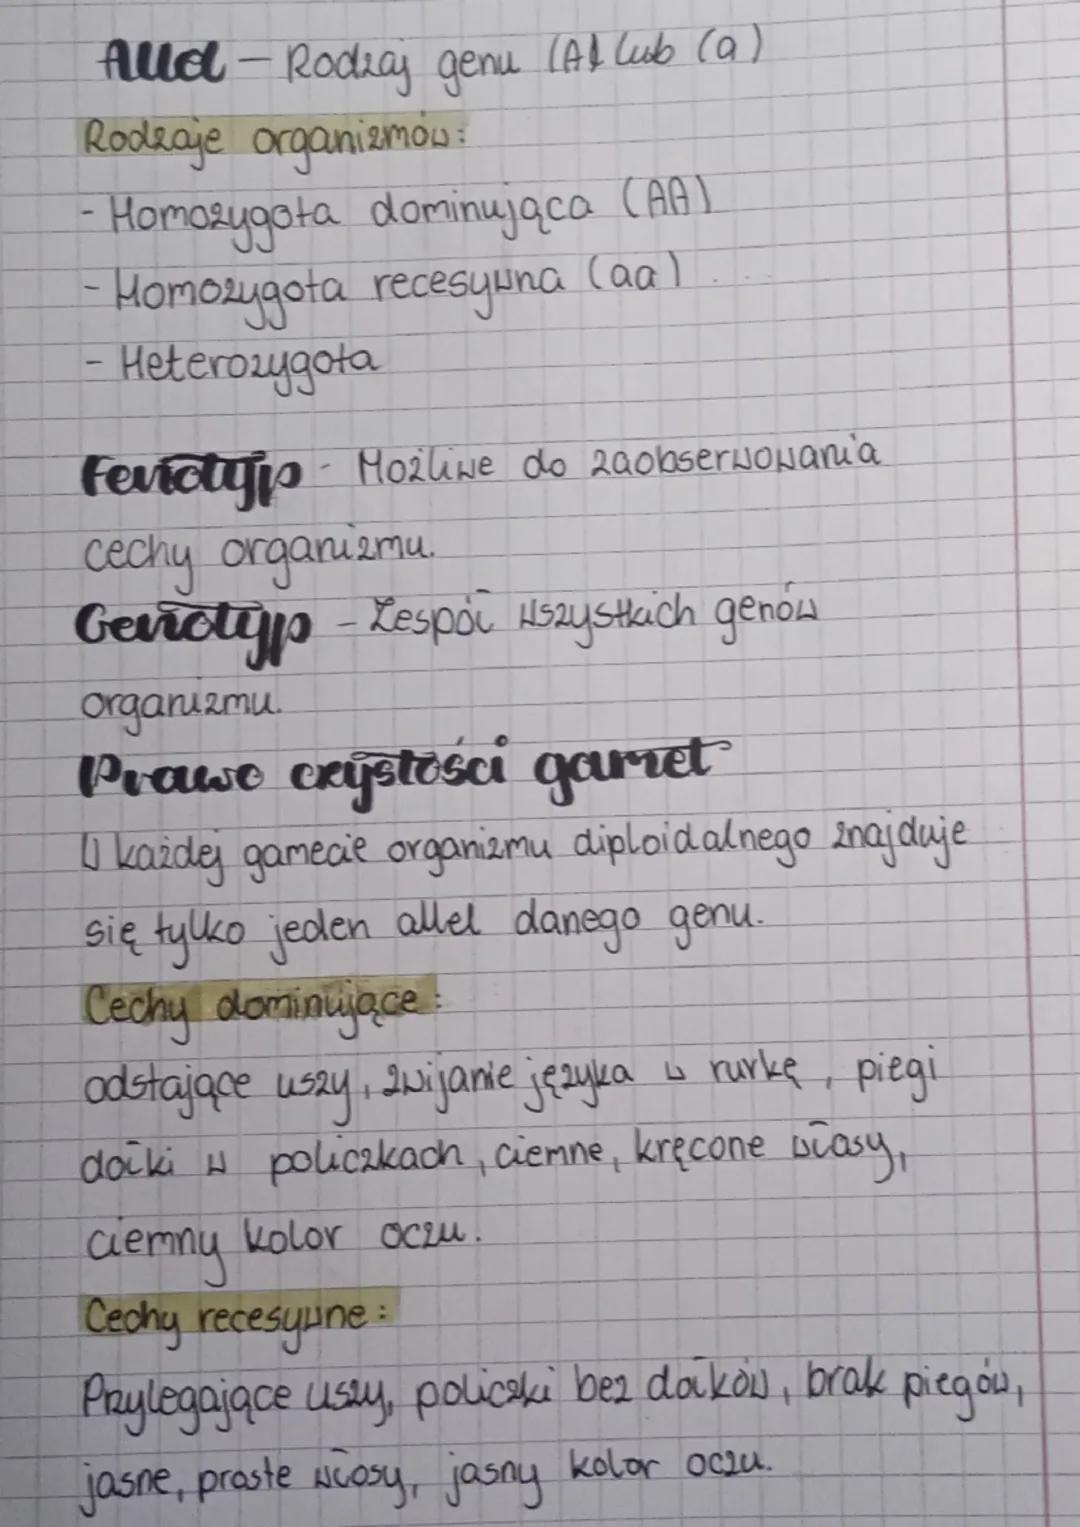 Allel – Rodzaj genu (A) lub (a)
Rodzaje organizmów:
- Homozygota dominująca (AA)
- Homozygota recesywna (aa)
- Heterozygota
Fenotyp - Możliwe do zaobserwowania
cechy organizmu.
Genotyp - Zespół wszystkich genów
organizmu.
Prawo czystości gamet
W każdej gamecie organizmu diploidalnego znajduje
się tylko jeden allel danego genu.
Cechy dominujące:
odstające uszy, zwijanie języka w rurkę, piegi
dołki w policzkach, ciemne, kręcone włosy,
ciemny kolor oczu.
Cechy recesywne:
Przylegające uszy, policzki bez dołków, brak piegów,
jasne, proste włosy, jasny kolor oczu.